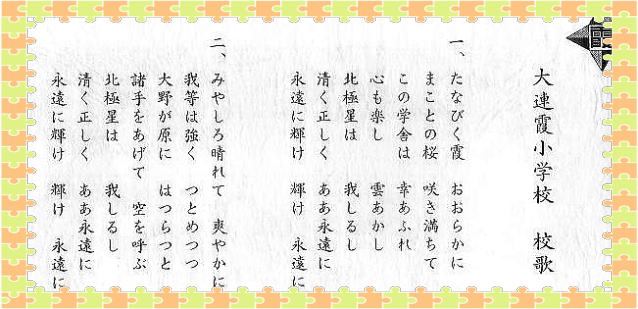 大連霞小学校 校歌
一、たなびく霞 おおらかに
まことの桜 咲き満ちて
この学舎は 幸あふれ
心も楽し 雲あかし
北極星は 我しるし
清く正しく ああ永遠に
永遠に輝け 輝け 永遠に
二、みやしろ晴れて 爽やかに
我等は強く つとめつつ
大野が原に はつらつと
諸手をあげて 空を呼ぶ
北極星は 我しるし
清く正しく ああ永遠に
永遠に輝け 輝け 永遠に